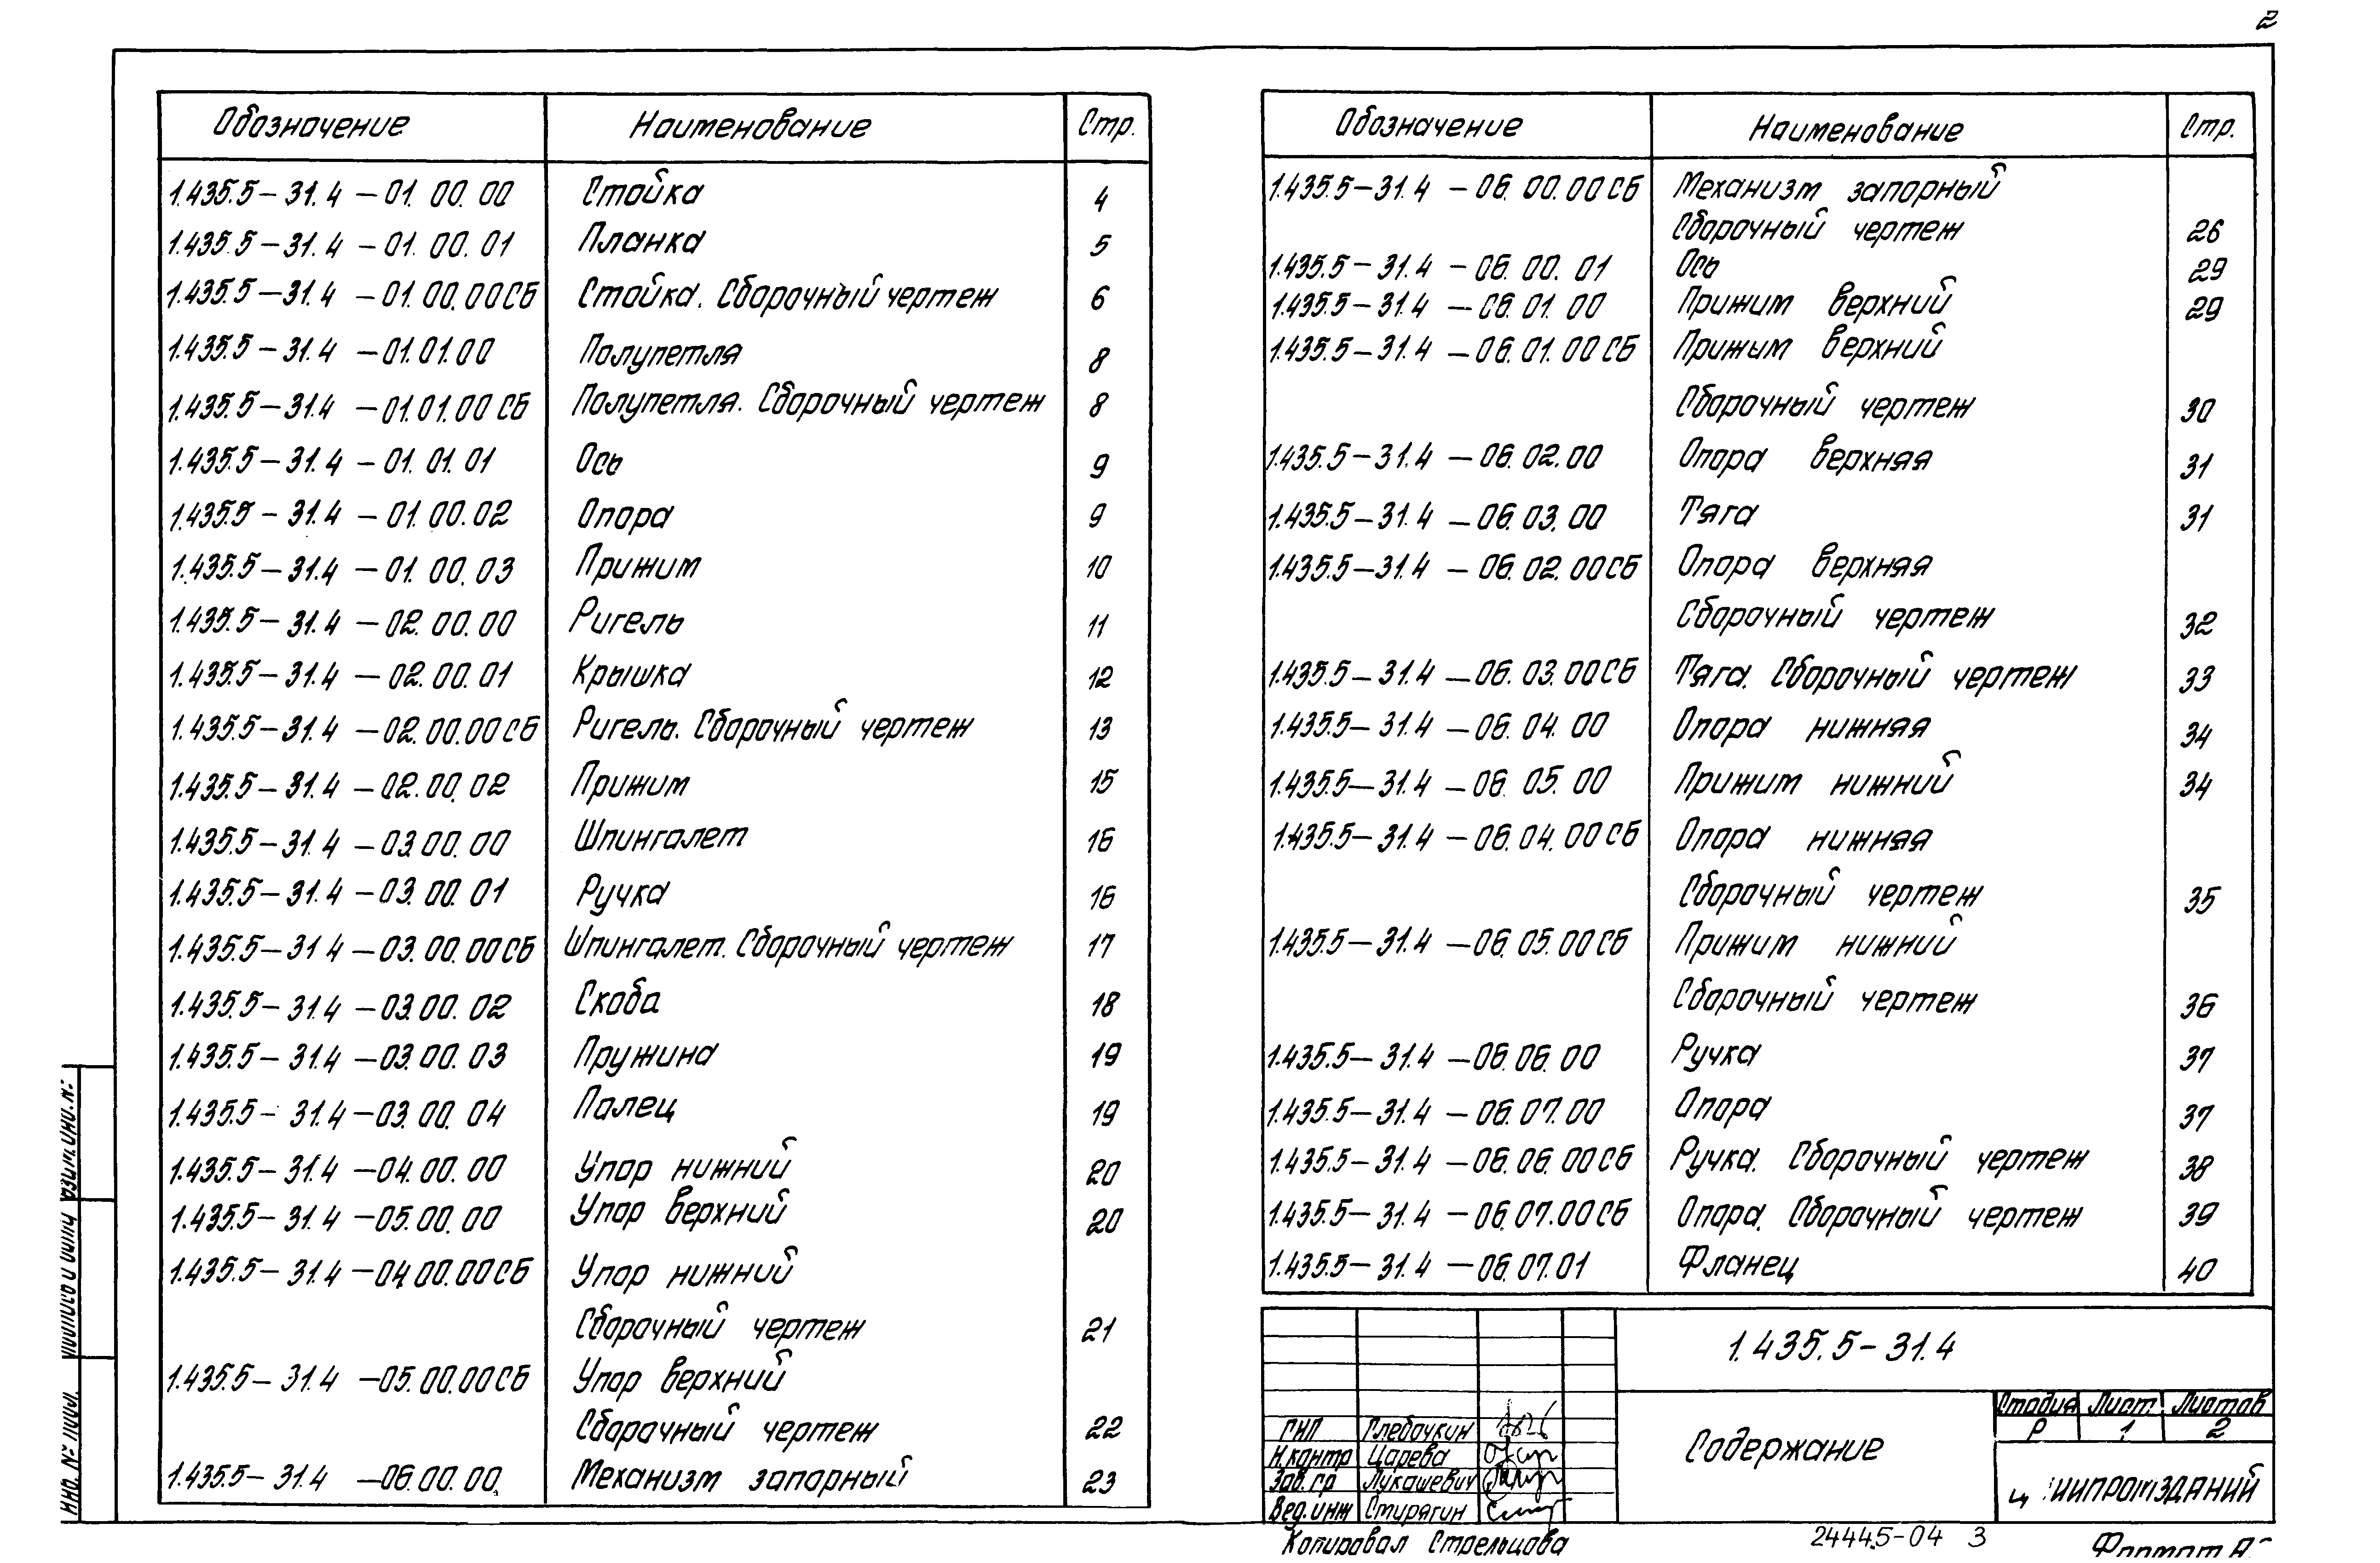 2
Обозначение Наименование Стр.
1.435.5-31.4-01.00.00 Стойка 4
1.435.5-31.4-01.00.01 Планка 5
1.435.5-31.4-01.00.00СБ Стойка. Сборочный чертеж 6
1.435.5-31.4-01.01.00 Полупетля 8
1.435.5-31.4-01.01.00СБ Полупетля. Сборочный чертеж 8
1.435.5-31.4-01.01.01 Ось 9
1.435.5-31.4-01.00.02 Опора 9
1.435.5-31.4-01.00.03 Прижим 10
1.435.5-31.4-02.00.00 Ригель 11
1.435.5-31.4-02.00.01 Крышка 12
1.435.5-31.4-02.00.00СБ Ригель. Сборочный чертеж 13
1.435.5-31.4-02.00.02 Прижим 15
1.435.5-31.4-03.00.00 Шпингалет 16
1.435.5-31.4-03.00.01 Ручка 16
1.435.5-31.4-03.00.00СБ Шпингалет. Сборочный чертеж 17
1.435.5-31.4-03.00.02 Скоба 18
1.435.5-31.4-03.00.03 Пружина 19
1.435.5-31.4-03.00.04 Палец 19
1.435.5-31.4-04.00.00 Упор нижний 20
1.435.5-31.4-05.00.00 Упор верхний 20
1.435.5-31.4-04.00.00СБ Упор нижний
Сборочный чертеж 21
1.435.5-31.4-05.00.00СБ Упор верхний
Сборочный чертеж 22
1.435.5-31.4-06.00.00. Механизм запорный 23
Обозначение Наименование Стр.
1.435.5-31.4-06.00.00СБ Механизм запорный
Сборочный чертеж 26
1.435.5-31.4-06.00.01 Ось 29
1.435.5-31.4-06.01.00 Прижим верхний 29
1.435.5-31.4-06.01.00СБ Прижим верхний
Сборочный чертеж 30
1.435.5-31.4-06.02.00 Опора верхняя 31
1.435.5-31.4-06.03.00 Тяга 31
1.435.5-31.4-06.02.00СБ Опора верхняя
Сборочный чертеж 32
1.435.5-31.4-06.03.00СБ Тяга. Сборочный чертеж 33
1.435.5-31.4-06.04.00 Опора нижняя 34
1.435.5-31.4-06.05.00 Прижим нижний 34
1.435.5-31.4-06.04.00СБ Опора нижняя
Сборочный чертеж 35
1.435.5-31.4-06.05.00СБ Прижим нижний
Сборочный чертеж 36
1.435.5-31.4-06.06.00 Ручка 37
1.435.5-31.4-06.07.00 Опора 37
1.435.5-31.4-06.06.00СБ Ручка. Сборочный чертеж 38
1.435.5-31.4-06.07.00СБ Опора. Сборочный чертеж 39
1.435.5-31.4-06.07.01 Фланец 40
1.435.5-31.4
Содержание
Стадия Лист Листов
Р 1 2
ЦНИИПРОМЗДАНИЙ
ГИП Глебочкин
Н.контр Царева
Зав.гр Лукашевич
Вед.инж Стурягин
Копировал Стрельцова
24445-04 3
Формат